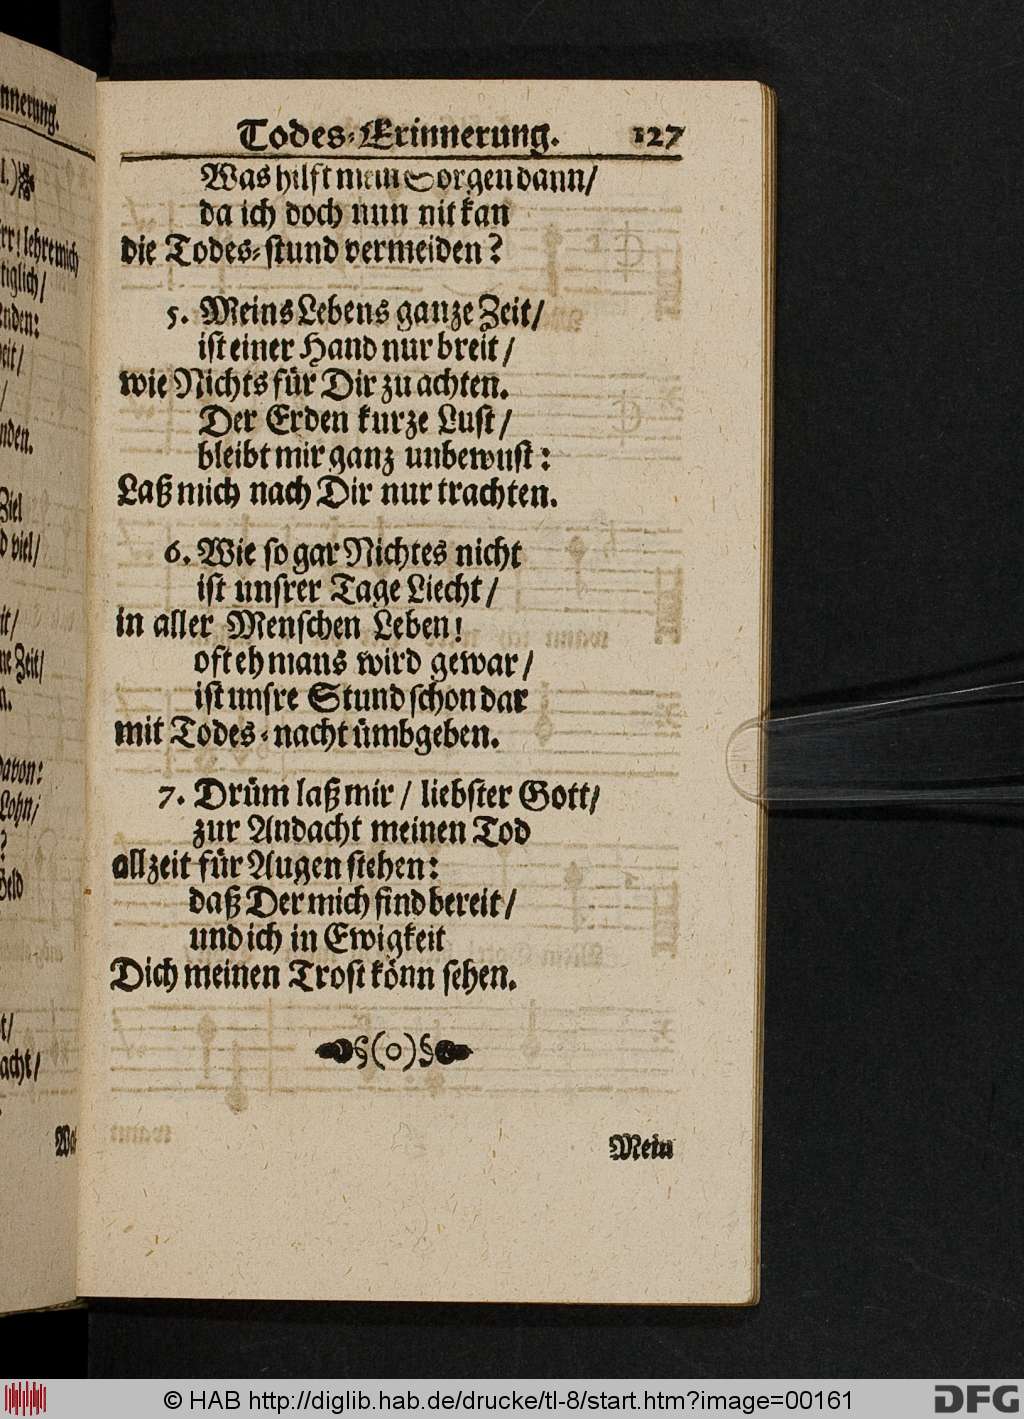 Todes-Erinnerung. 127
Was hilft mein Sorgen dann/
da ich doch nun nit kan
die Todes-stund vermeiden?
5. Meins Lebens ganze Zeit/
ist einer Hand nur breit/
wie Nichts für Dir zu achten.
Der Erden kurze Lust/
bleibt mir ganz unbewust:
Laß mich nach Dir nur trachten.
6. Wie so gar Nichtes nicht
ist unsrer Tage Liecht/
in aller Menschen Leben!
oft eh mans wird gewar/
ist unsre Stund schon dar
mit Todes-nacht ümbgeben.
7. Drüm laß mir/ liebster Gott/
zur Andacht meinen Tod
allzeit für Augen stehen:
daß Der mich find bereit/
und ich in Ewigkeit
Dich meinen Trost könn sehen.
§(o)§
Mein
nnerung.
lehre mich
tiglich/
nden:
eit/
nden.
Ziel
viel/
it/
ne Zeit/
n.
davon:
Lohn/
?
Geld
t/
acht/
© HAB http://diglib.hab.de/drucke/tl-8/start.htm?image=00161
DFG